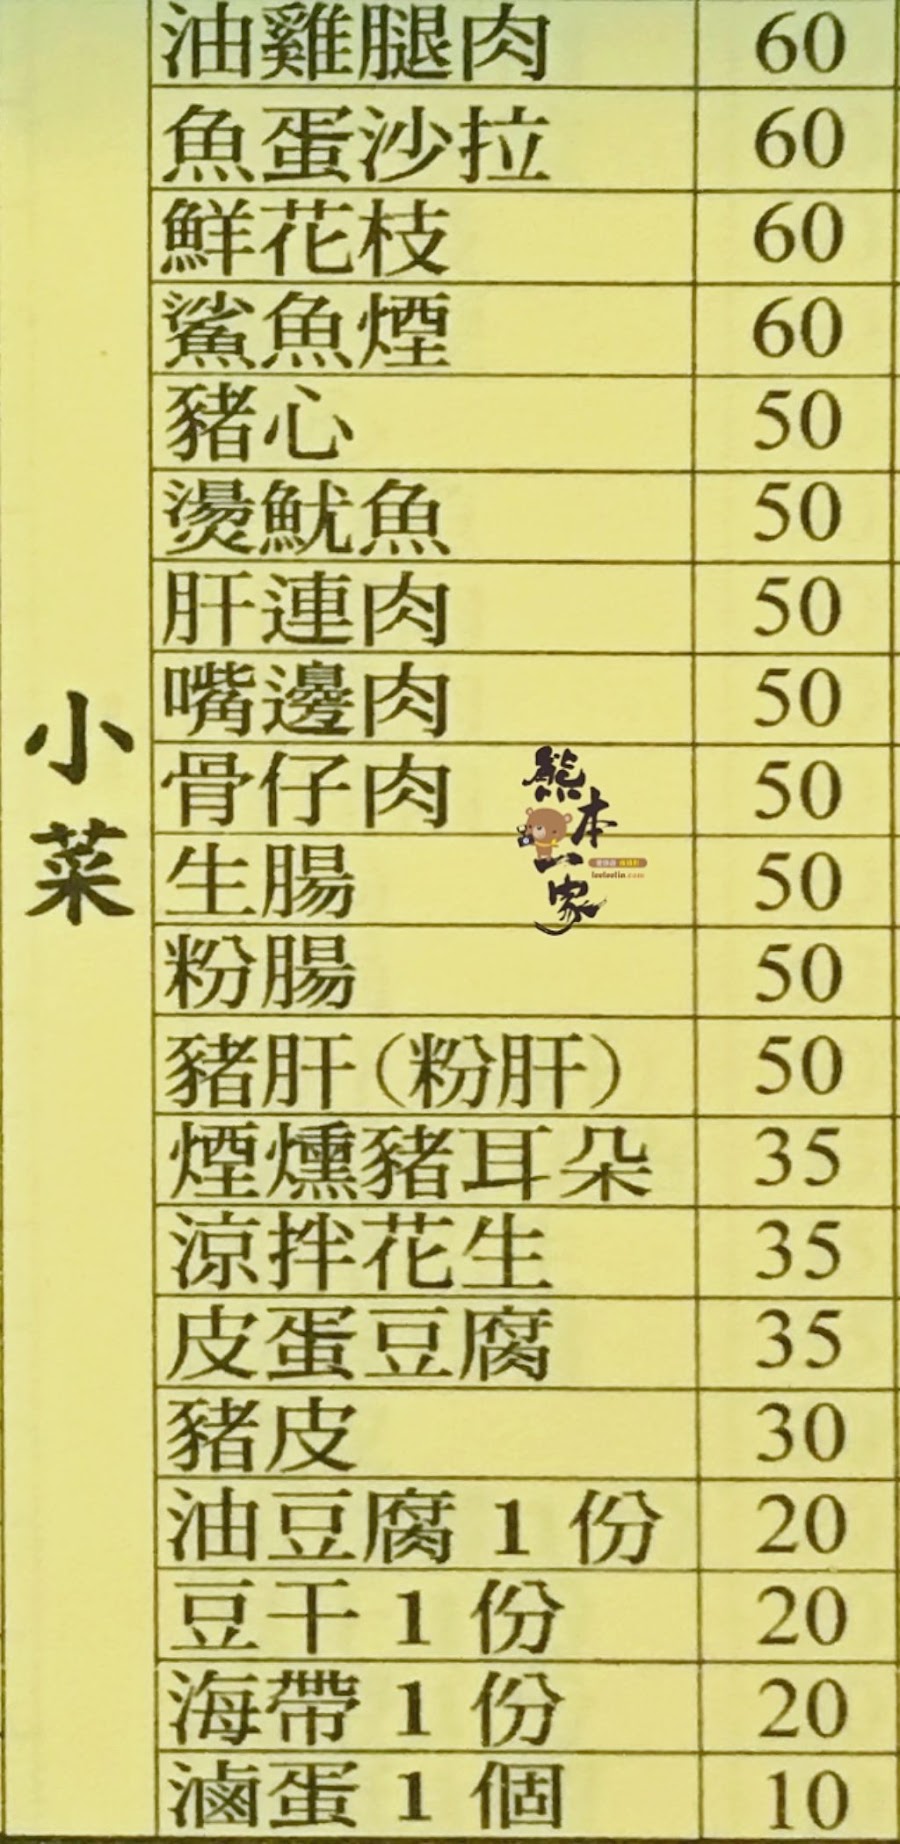 油雞腿肉 60
魚蛋沙拉 60
鮮花枝 60
鯊魚煙 60
豬心 50
燙魷魚 50
肝連肉 50
嘴邊肉 50
骨仔肉 50
生腸 50
粉腸 50
豬肝(粉肝) 50
煙燻豬耳朵 35
涼拌花生 35
皮蛋豆腐 35
豬皮 30
油豆腐 1 份 20
豆干 1 份 20
海帶 1 份 20
滷蛋 1 個 10
小菜
熊本一家
leeleelin.com